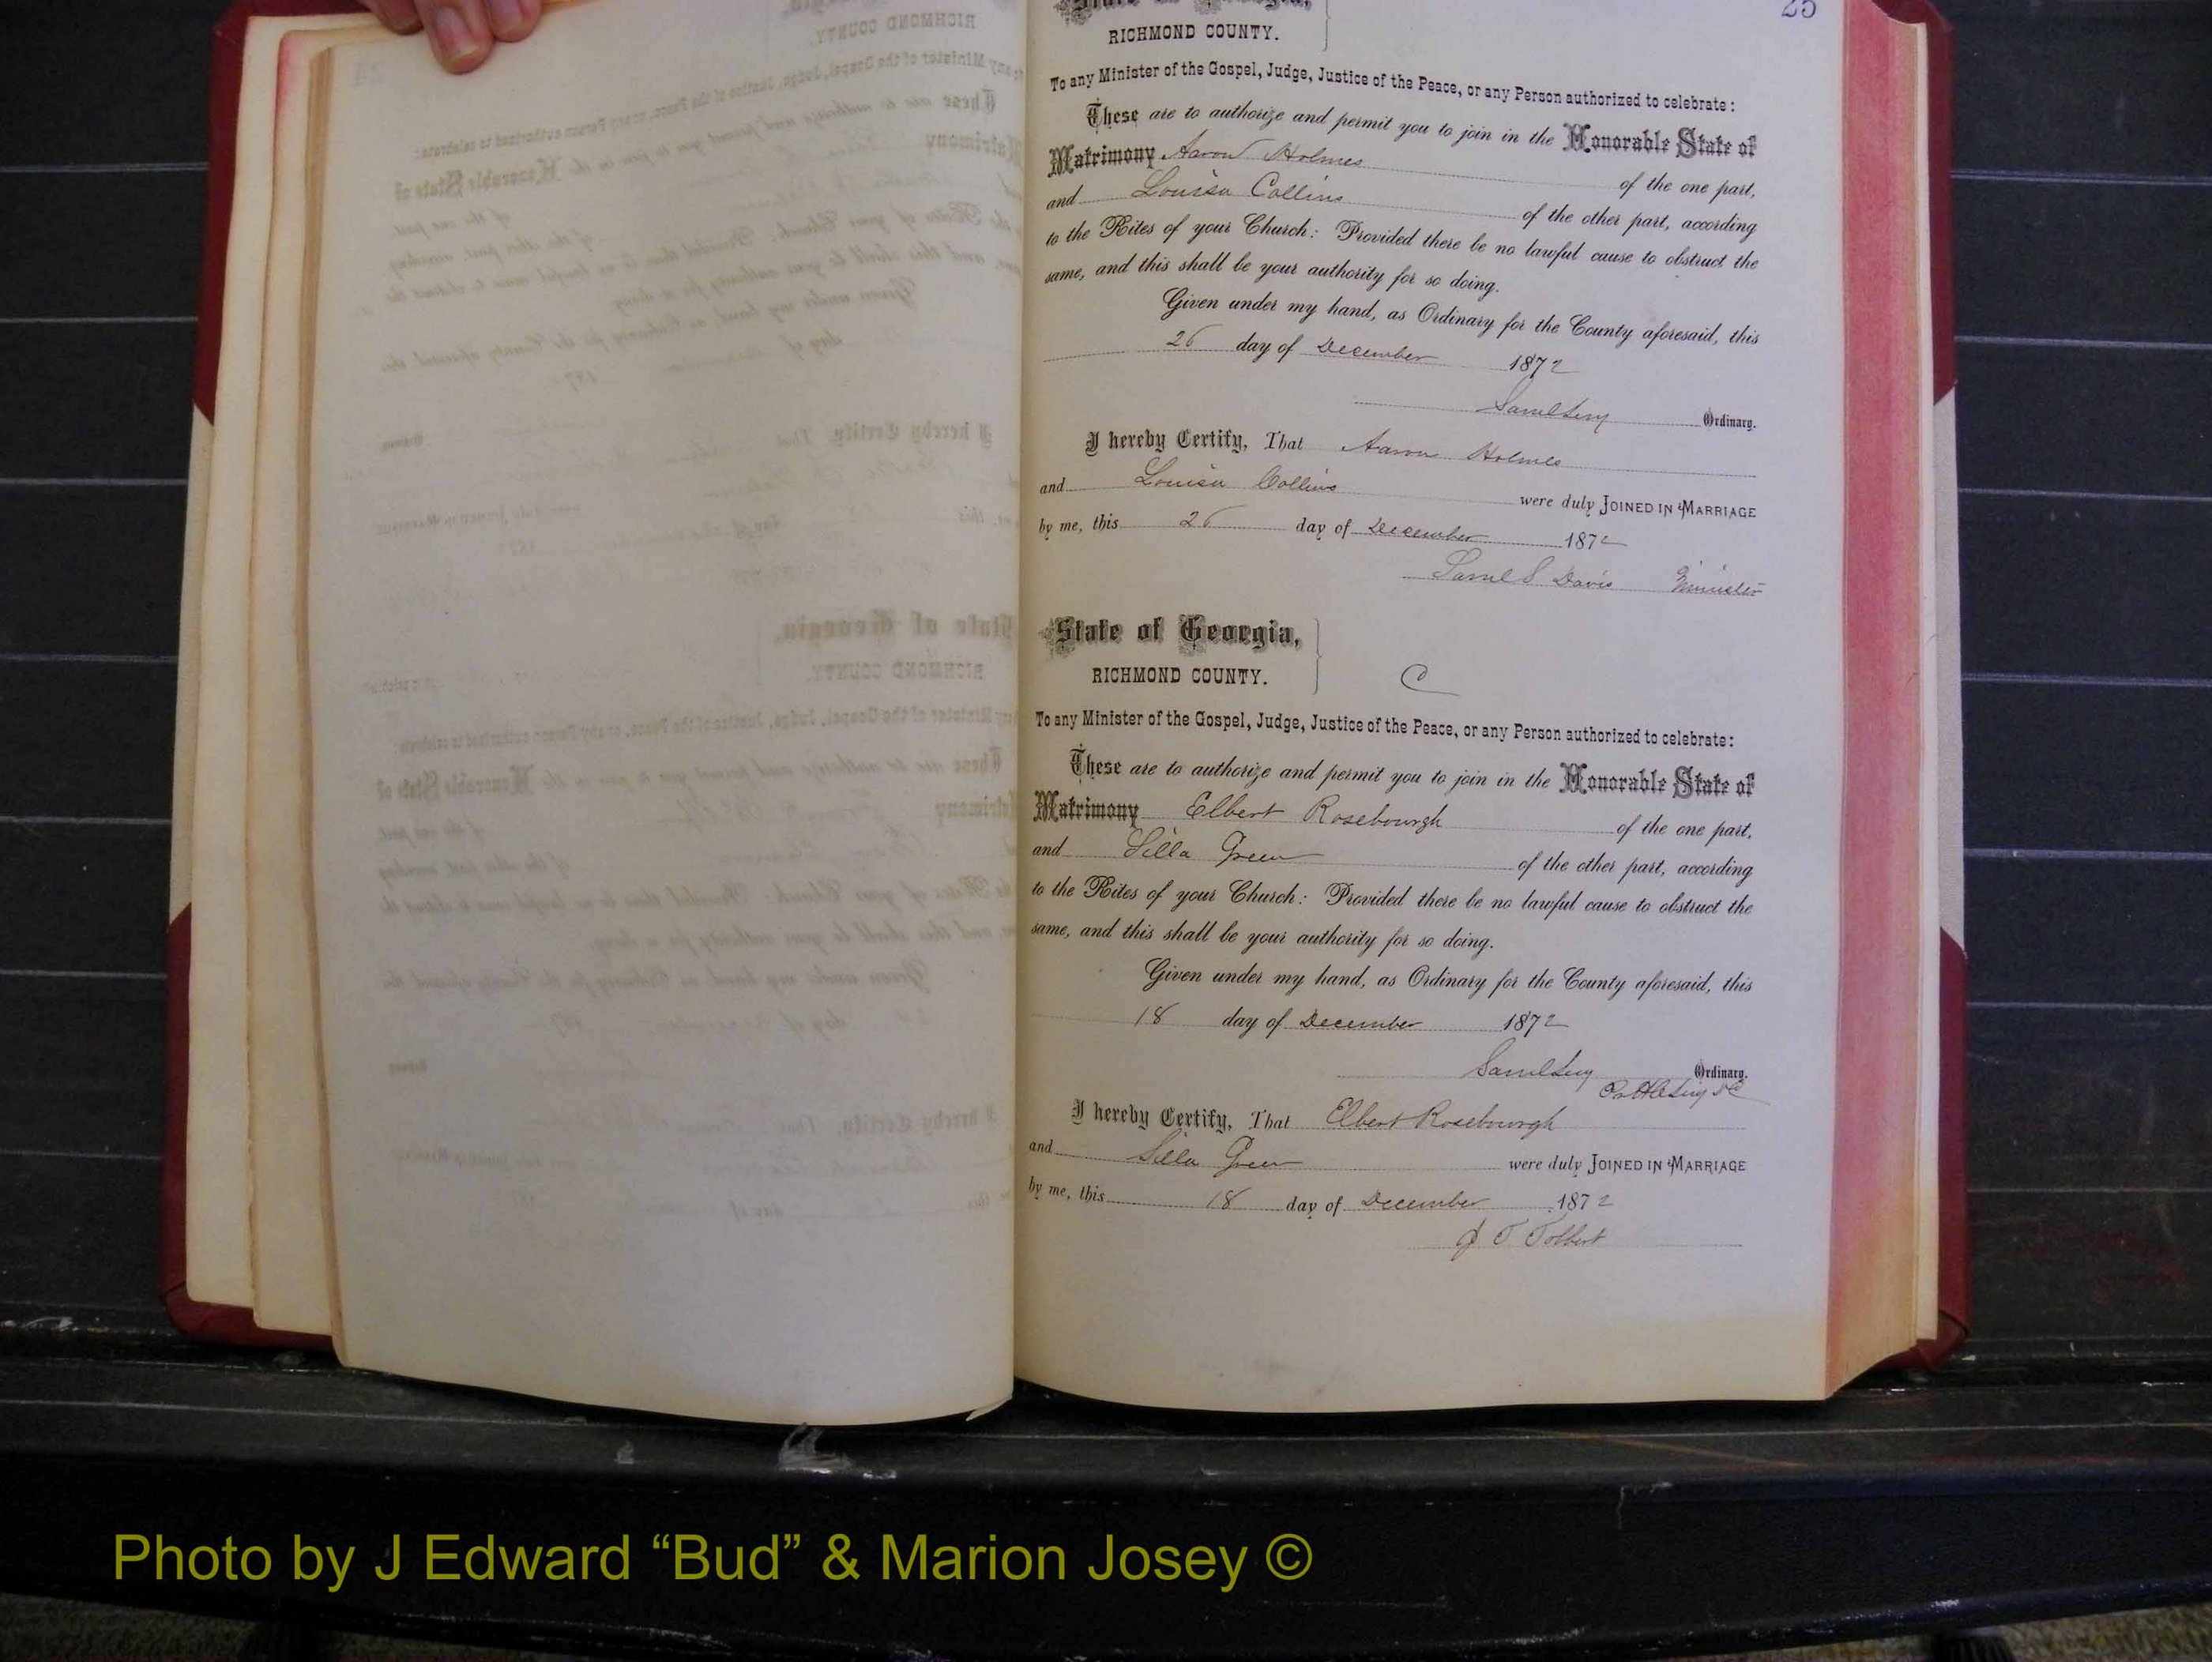 25
State of Georgia,
RICHMOND COUNTY.
To any Minister of the Gospel, Judge, Justice of the Peace, or any Person authorized to celebrate:
These are to authorize and permit you to join in the Honorable State of
Matrimony Aaron Holmes of the one part,
and Louisa Collins of the other part, according
to the Rites of your Church: Provided there be no lawful cause to obstruct the
same, and this shall be your authority for so doing.
Given under my hand, as Ordinary for the County aforesaid, this
26 day of December 1872
Saml Levy Ordinary.
I hereby Certify, That Aaron Holmes
and Louisa Collins were duly JOINED IN MARRIAGE
by me, this 26 day of December 1872
Saml S Davis Minister
State of Georgia,
RICHMOND COUNTY. C
To any Minister of the Gospel, Judge, Justice of the Peace, or any Person authorized to celebrate:
These are to authorize and permit you to join in the Honorable State of
Matrimony Elbert Rosebourgh of the one part,
and Silla Green of the other part, according
to the Rites of your Church: Provided there be no lawful cause to obstruct the
same, and this shall be your authority for so doing.
Given under my hand, as Ordinary for the County aforesaid, this
18 day of December 1872
Saml Levy Ordinary.
I hereby Certify, That Elbert Rosebourgh
and Silla Green were duly JOINED IN MARRIAGE
by me, this 18 day of December 1872
J T Tolbert
Photo by J Edward “Bud” & Marion Josey ©